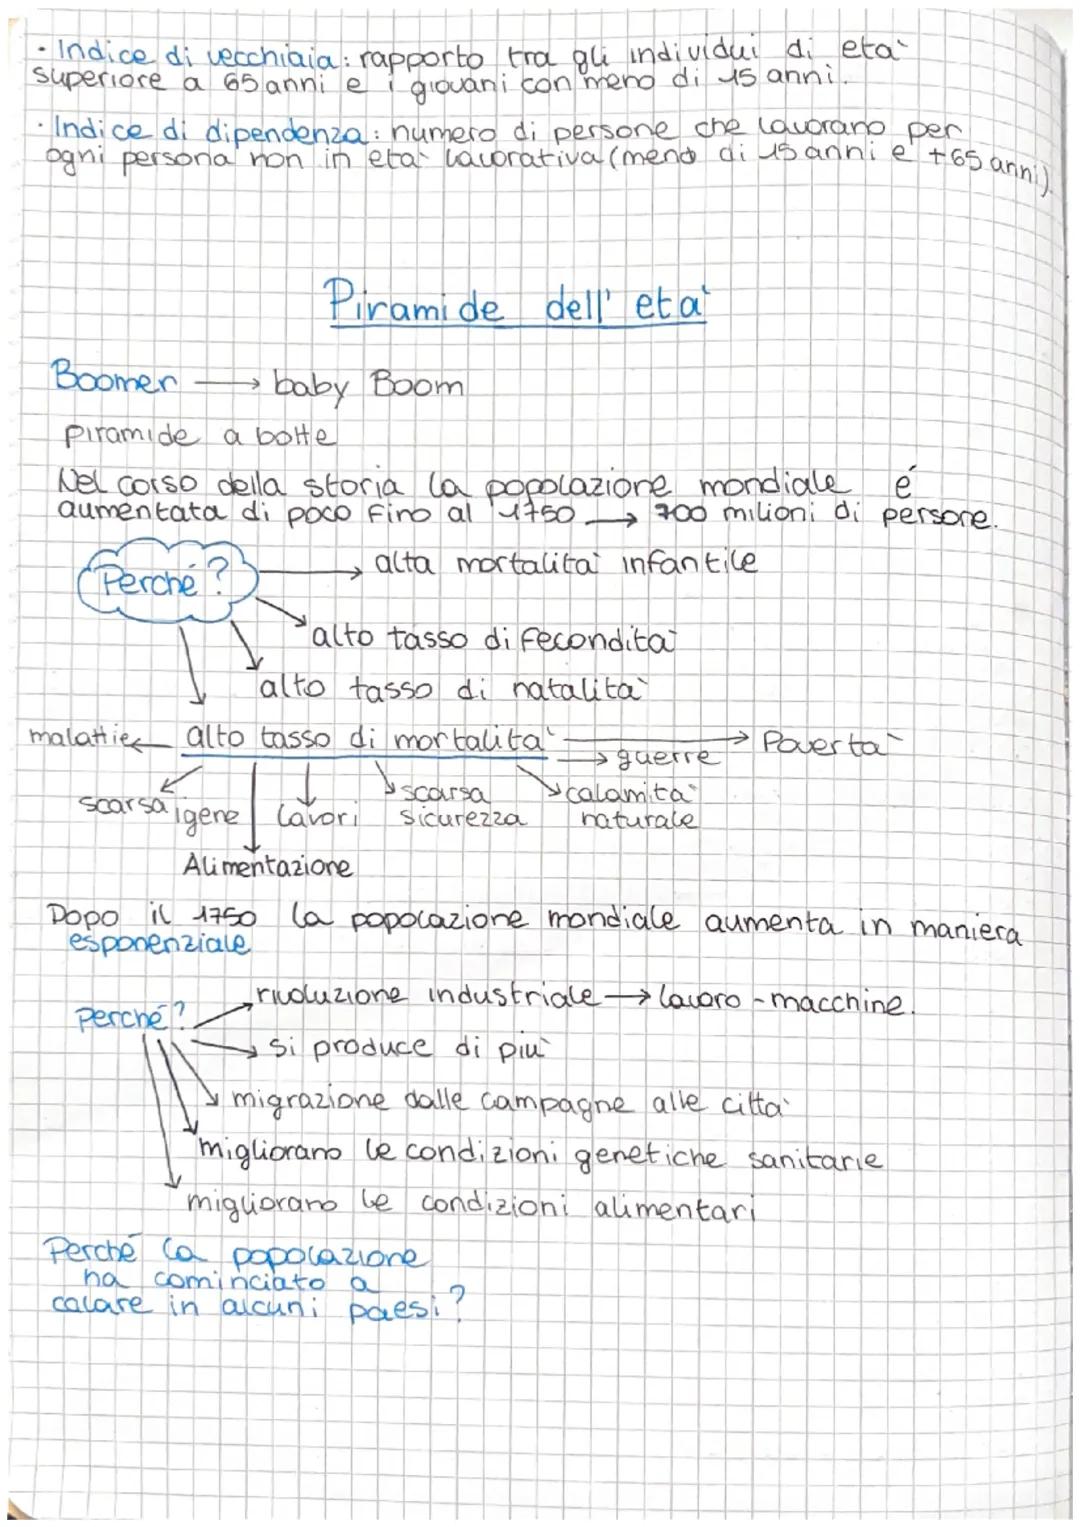 · Indice di vecchiaia: rapporto tra gli individui di età
superiore a 65 anni e i giovani con meno di 15 anni.
· Indice di dipendenza: numero di persone che lavorano per
ogni persona non in età lavorativa (meno di 15 anni e +65 anni).
Piramide dell'età
Boomer → baby Boom
piramide a botte
Nel corso della storia la popolazione mondiale é
aumentata di poco fino al 1750 → 700 milioni di persone.
Perché? → alta mortalità infantile
alto tasso di fecondità
alto tasso di natalità
malattie ← alto tasso di mortalità → Povertà
→ guerre
scarsa igene
lavori
scarsa sicurezza
calamità naturale
Alimentazione
Dopo il 1750 la popolazione mondiale aumenta in maniera
esponenziale
perché? → rivoluzione industriale → lavoro - macchine.
→ si produce di più
migrazione dalle campagne alle città
migliorano le condizioni genetiche sanitarie
migliorano le condizioni alimentari
Perché la popolazione
ha cominciato a
calare in alcuni paesi?